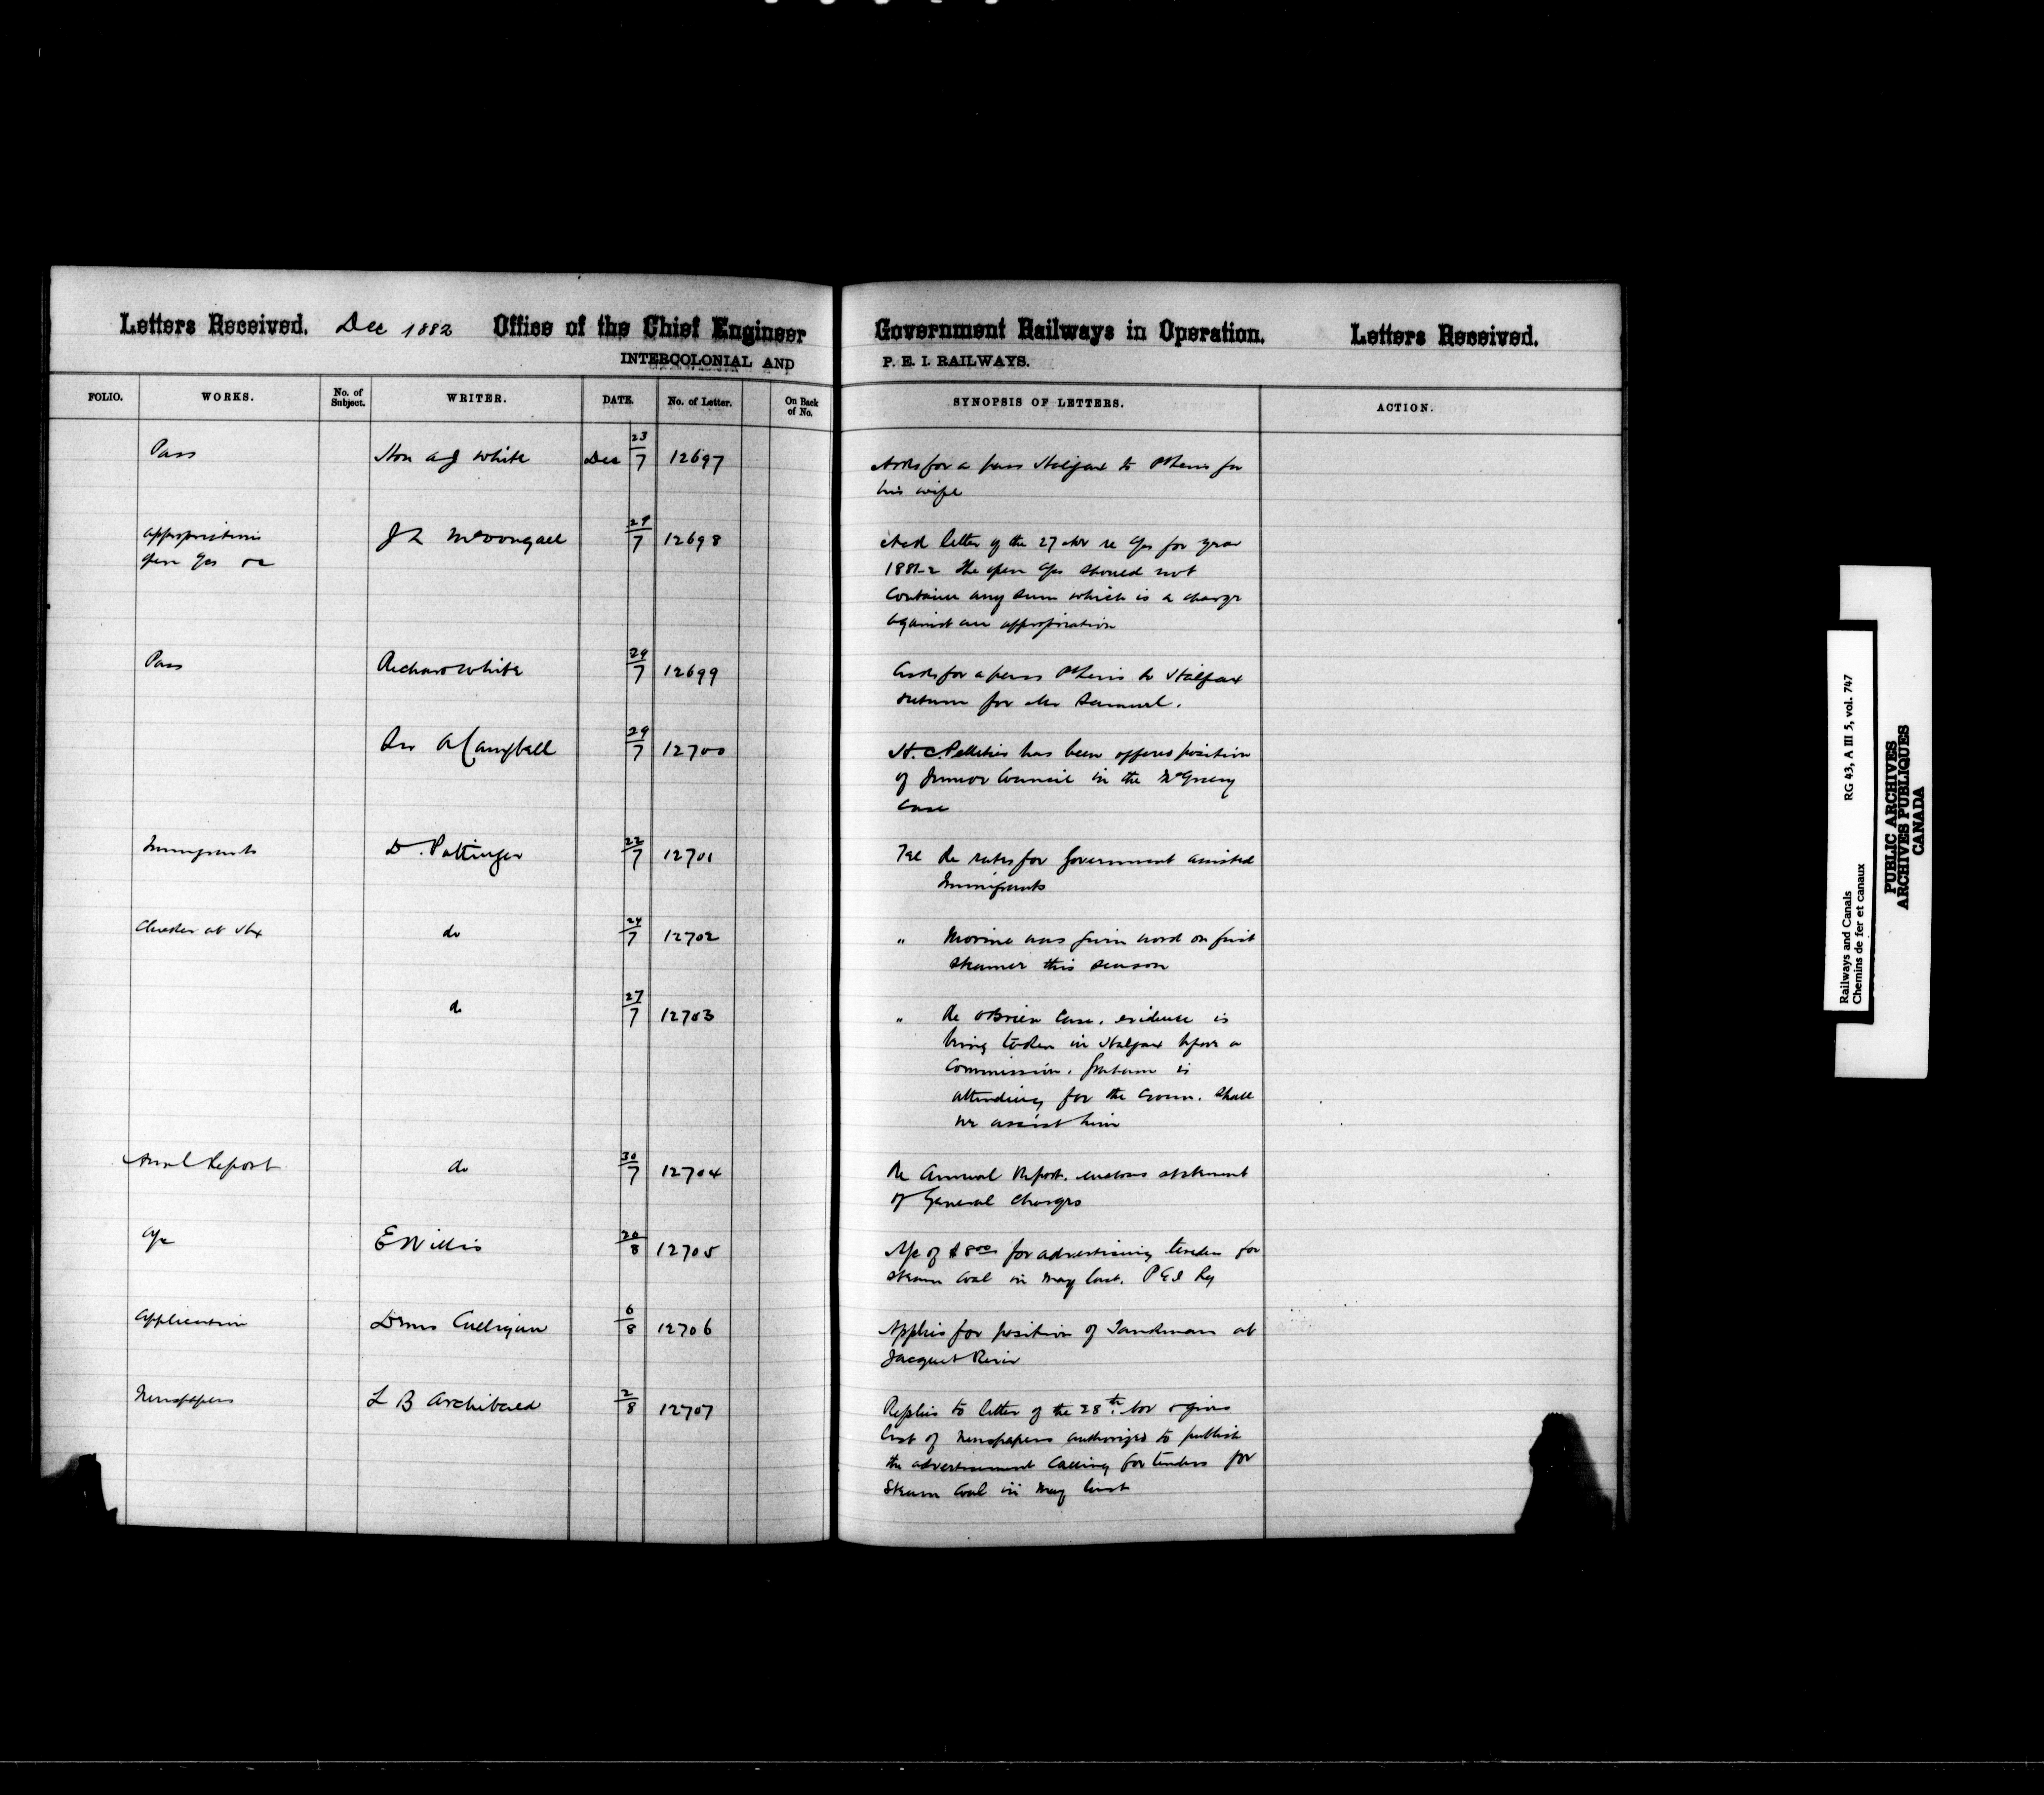 Letters Received. Dec 1882 Office of the Chief Engineer
INTERCOLONIAL AND
FOLIO. WORKS. No. of Subject. WRITER. DATE. No. of Letter. On Back of No.
Government Railways in Operation. Letters Received.
P. E. I. RAILWAYS.
SYNOPSIS OF LETTERS. ACTION.
Pass Hon A J White Dec 23/7 12697
Asks for a pass Halifax to for
his wife
Appropriations J L McDougall 29/7 12698
open
Ackd letter of the 27 re for year
1881-2 the open should not
contain any sum which is a charge
against an appropriation
Pass Richard White 29/7 12699
Asks for a pass to Halifax
return for Mr Samuel.
A Campbell 29/7 12700
H. C. Pelletier has been offered position
of Junior Council in the McGreevy
case
Immigrants D. Pottinger 22/7 12701
Tel Re rates for Government assisted
Immigrants
Checker at Hx do 24/7 12702
" Morine was given word on first
steamer this season
do 27/7 12703
" Re OBrien Case. evidence is
being taken in Halifax before a
Commission. Graham is
attending for the Crown. Shall
we assist him
Annl Report do 30/7 12704
Re Annual Report. encloses statement
of General Charges
a/c E Willis 20/8 12705
A/c of $8.00 for advertising tender for
steam coal in May last. P E I Ry
Application Dennis Culligan 6/8 12706
Applies for position of Tankman at
Jacquet River
Newspapers L B Archibald 2/8 12707
Replies to letter of the 28th & gives
list of Newspapers authorized to publish
the advertisement calling for tenders for
Steam Coal in May last
Railways and Canals RG 43, A III 5, vol. 747
Chemins de fer et canaux
PUBLIC ARCHIVES
ARCHIVES PUBLIQUES
CANADA